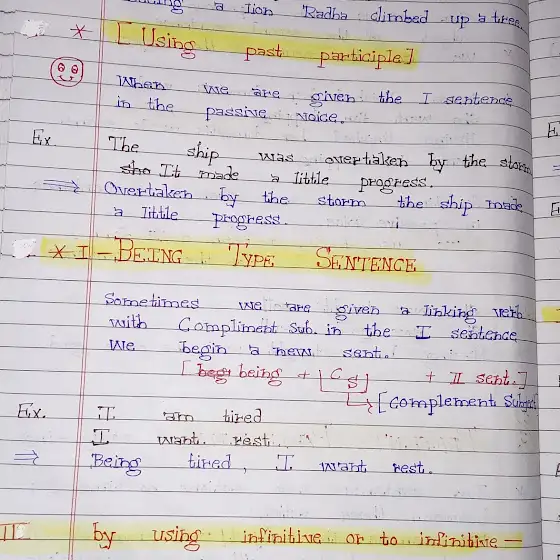 a lion Radha climbed up a tree.
* [Using past participle]
When we are given the I sentence
in the passive voice.
Ex. The ship was overtaken by the storm
sho It made a little progress.
⇒ Overtaken by the storm the ship made
a little progress.
* I - BEING TYPE SENTENCE
Sometimes we are given a linking verb
with Compliment Sub. in the I sentence
We begin a new sent.
[beg being + CS + II sent.]
→ [Complement Subject
Ex. I am tired
I want rest.
⇒ Being tired, I want rest.
II by using infinitive or to infinitive —